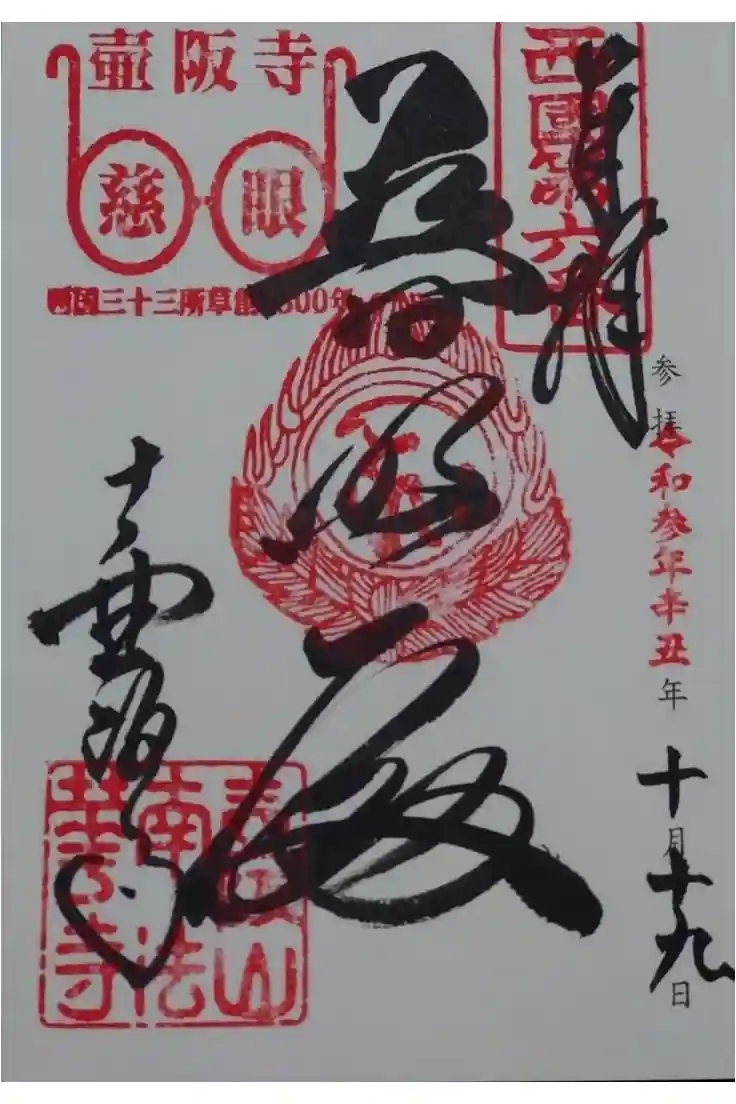 奉拝
西國第六番
参拝 令和参年辛丑年 十月十九日
普照殿
壷阪寺
慈眼
西国三十三所草創1300年
壺阪寺
壺阪山
南法
華寺